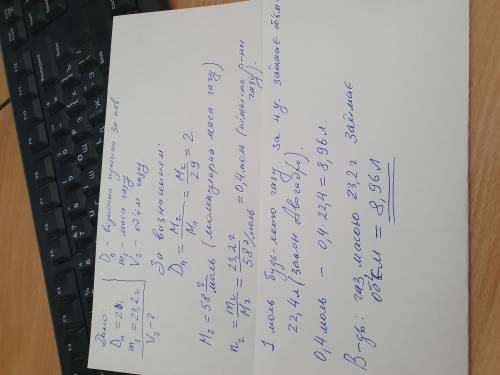 Дано:
Dп = 2.
mг = 23,2 г
Vг - ?
Dп - відносна густина за пов.
mг - маса газу
Vг - об'єм газу.
За визначенням:
Dп = Mг/Mп = Mг/29 = 2
Mг = 58 г/моль (молекулярна маса газу)
nг = mг/Mг = 23,2 г/58 г/моль = 0,4 моль (кількість р-ни газу).
1 моль будь-якого газу за н.у. займає об'єм
22,4 л (закон Авогадро).
0,4 моль - 0,4·22,4 = 8,96 л.
В-дь: газ масою 23,2 г займає
об'єм = 8,96 л